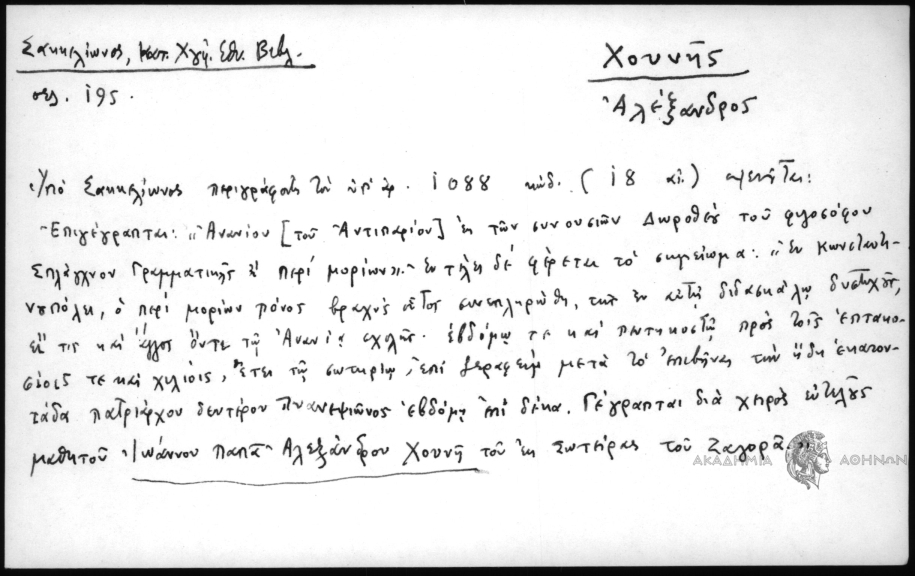 Σακκελίωνος, Κατ. Χγφ. Εθν. Βιβλ.
Χουνῆς
σελ. 195.
Ἀλέξανδρος
Ὑπό Σακκελίωνος περιγράφεται τοῦ ὑπ' ἀρ. 1088 κώδ. (18 αἰ.)
Ἐπιγέγραπται: "Ἀνανίου [τοῦ Ἀντιπαρίου] ἐκ τῶν συνουσιῶν Δωροθέου τοῦ φιλοσόφου
Σπλάγχνον Γραμματικῆς ἢ περί μορίων". Ἐν τέλει δέ φέρεται τό σημείωμα: "Ἐν Κωνσταντι-
νουπόλει, ὁ περί μορίων πόνος βραχύς οὗτος συνεπληρώθη, τοῦ ἐν αὐτῇ διδασκάλου δυστυχοῦς,
εἴ τις καί ἄλλος ὄντος τῷ Ἀνανίᾳ σχολῆς. ἑβδόμῳ τε καί πεντηκοστῷ πρός τοῖς ἑπτακο-
σίοις τε καί χιλίοις, ἔτει τῷ σωτηρίῳ, ἐπί Σεραφείμ μετά τό ἐπιβῆναι τήν ἤδη ἑκατον-
τάδα πατριάρχου δευτέρου Πυανεψιῶνος ἑβδόμῃ ἐπί δέκα. Γέγραπται διά χειρός εὐτελοῦς
μαθητοῦ Ἰωάννου παπᾶ Ἀλεξάνδρου Χουνῆ τοῦ ἐκ Σωτήρας τοῦ Ζαγορᾶ."
ΑΚΑΔΗΜΙΑ ΑΘΗΝΩΝ